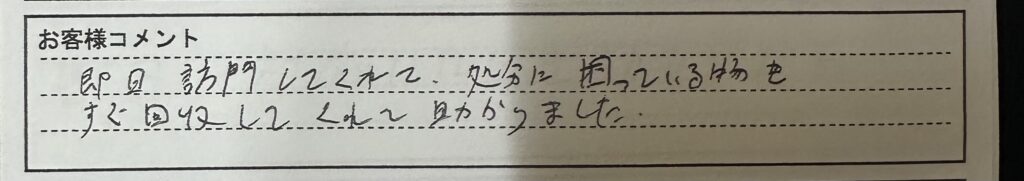 お客様コメント
即日訪問してくれて、処分に困っている物を
すぐ回収してくれて助かりました。